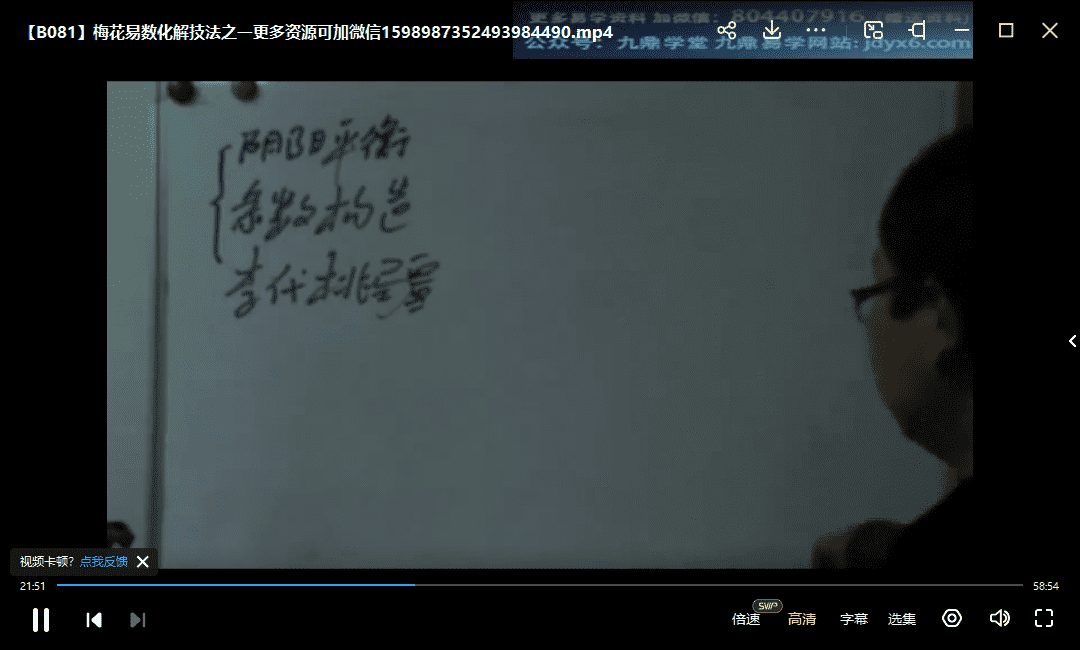 【B081】梅花易数化解技法之一更多资源可加微信1598987352493984490.mp4
更多易学资料 加微信: 804407916
公众号: 九鼎学堂 九鼎易学网站: jdyx6.com
阴阳平衡
象数构造
李代桃僵
视频卡顿? 点我反馈
21:51
58:54
倍速
SVIP
高清
字幕
选集